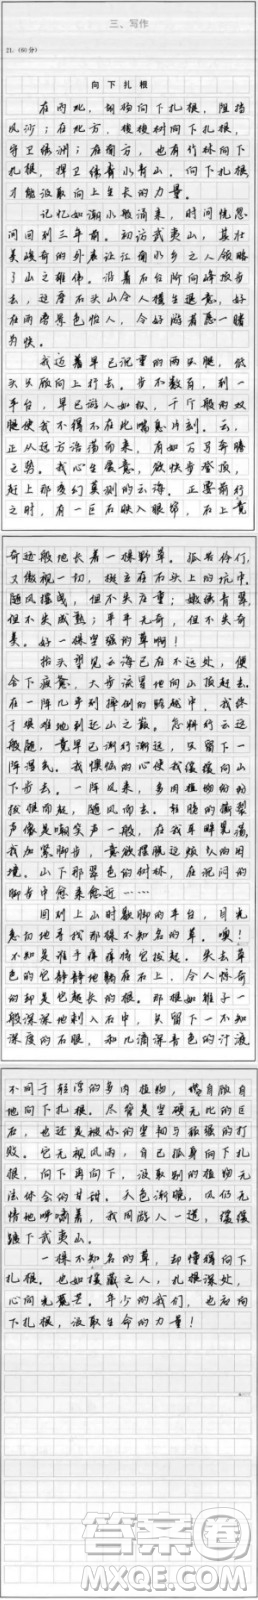 三、写作
21.(60分)
向下扎根
在西北，胡杨向下扎根，阻挡
风沙；在北方，梭梭树向下扎根，
守卫绿洲；在南方，也有竹林向下
扎根，捍卫绿水青山。向下扎根
才能汲取向上生长的力量。
记忆如潮水般涌来，时间恍惚
间回到三年前。初访武夷山，其壮
美峻奇的外表让江南水乡之人领略
了山之雄伟。沿着石台阶向峰顶步
去，这座石头山令人横生退意，好
在雨雾景色怡人，令好游者愿一睹
为快。
我迈着早已沉重的两头腿，低
头只顾向上行去。步不数百，到一
平台，早已游人如织，千斤般的双
腿使我不得不在此喘息片刻。云，
正从远方浩荡而来，有如万马奔腾
之势。我心生爱意，欲快步登顶，
赶上那变幻莫测的云海。正要前行
之时，有一巨石映入眼帘，石上竟
奇迹般地长着一棵野草。孤苦伶仃，
又傲视一切，挺立在石头上的坑中。
随风摇曳，但不失庄重；嫩绿青翠，
但不失成熟；平平无奇，但不失奇
美。好一棵坚强的草啊！
抬头望见云海已在不远处，便
舍下疲惫，大步流星地向山顶赶去。
在一阵几乎到摔倒的踉跄中，我终
于艰难地到达山之巅。怎料行云这
般随，竟早已渐行渐远，只留下一
阵湿气。我懊恼的心使我缓缓向山
下步去。一阵风来，多肉植物纷纷
拔根而起，随风而去。轻腾的撕裂
声像是嘲笑声一般，在我耳畔萦荡，
我加紧脚步，竟欲摆脱这烦人的困
境。山下那翠色的树林，在沉闷的
脚步中愈来愈近……
回到上山时歇脚的平台，目光
急切地寻找那棵不知名的草。噢！
不知是谁手痒痒将它拔起。失去草
色的它静静地躺在石上，令人惊奇
的却是它超长的根。那根如锥子一
般深深地刺入石中，只留下一不知
深度的石眼，和几滴深青色的汁液
不同于轻浮的多肉植物，独自傲自
地向下扎根。尽管是坚硬无比的巨
石，也还是被你的坚韧与顽强的打
败。它无视风雨，自己孤身向下扎
根，向下再向下，汲取别的植物无
法体会的甘甜。天色渐晚，风仍无
情地呼啸着，我同游人一道，缓缓
踱下武夷山。
一棵不知名的草，却懂得向下
扎根。也如蕴藏之人，扎根深处，
心向光芒。年少的我们，也应向
下扎根，汲取生命的力量！
答案圈
MXQE.COM